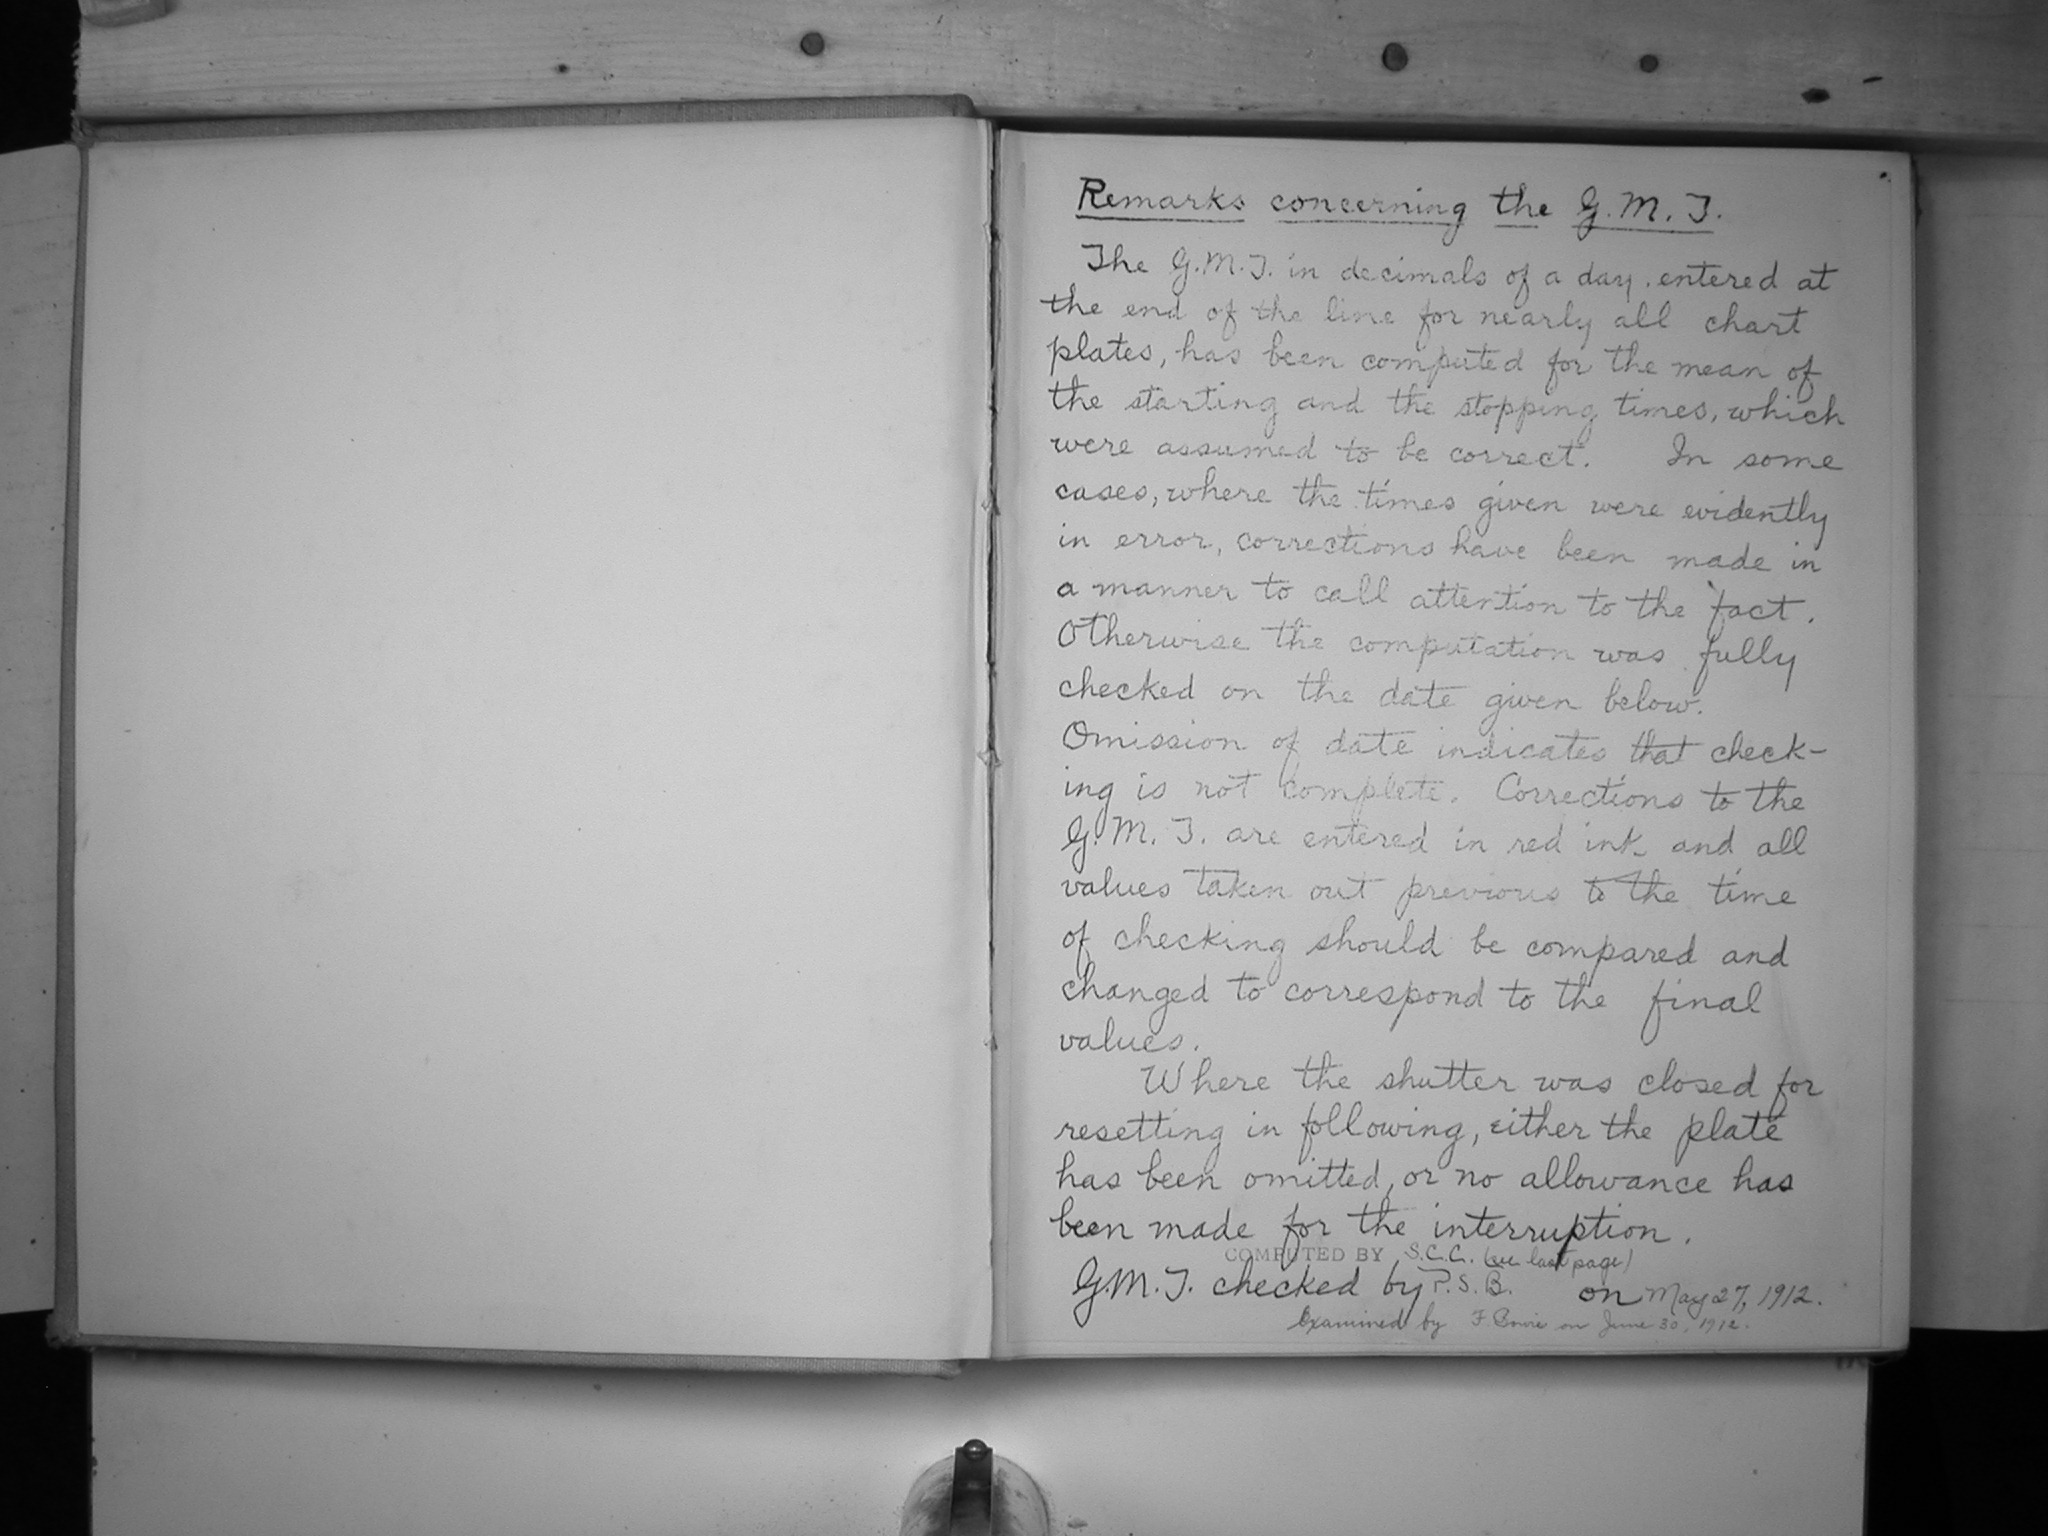 Remarks concerning the G.M.T.
The G.M.T. in decimals of a day, entered at
the end of the line for nearly all chart
plates, has been computed for the mean of
the starting and the stopping times, which
were assumed to be correct. In some
cases, where the times given were evidently
in error, corrections have been made in
a manner to call attention to the fact.
Otherwise the computation was fully
checked on the date given below.
Omission of date indicates that check-
ing is not complete. Corrections to the
G.M.T. are entered in red ink and all
values taken out previous to the time
of checking should be compared and
changed to correspond to the final
values.
Where the shutter was closed for
resetting in following, either the plate
has been omitted, or no allowance has
been made for the interruption.
COMPUTED BY S.C.C. (see last page)
G.M.T. checked by P.S.B. on May 27, 1912.
Examined by F. on June 30, 1912.